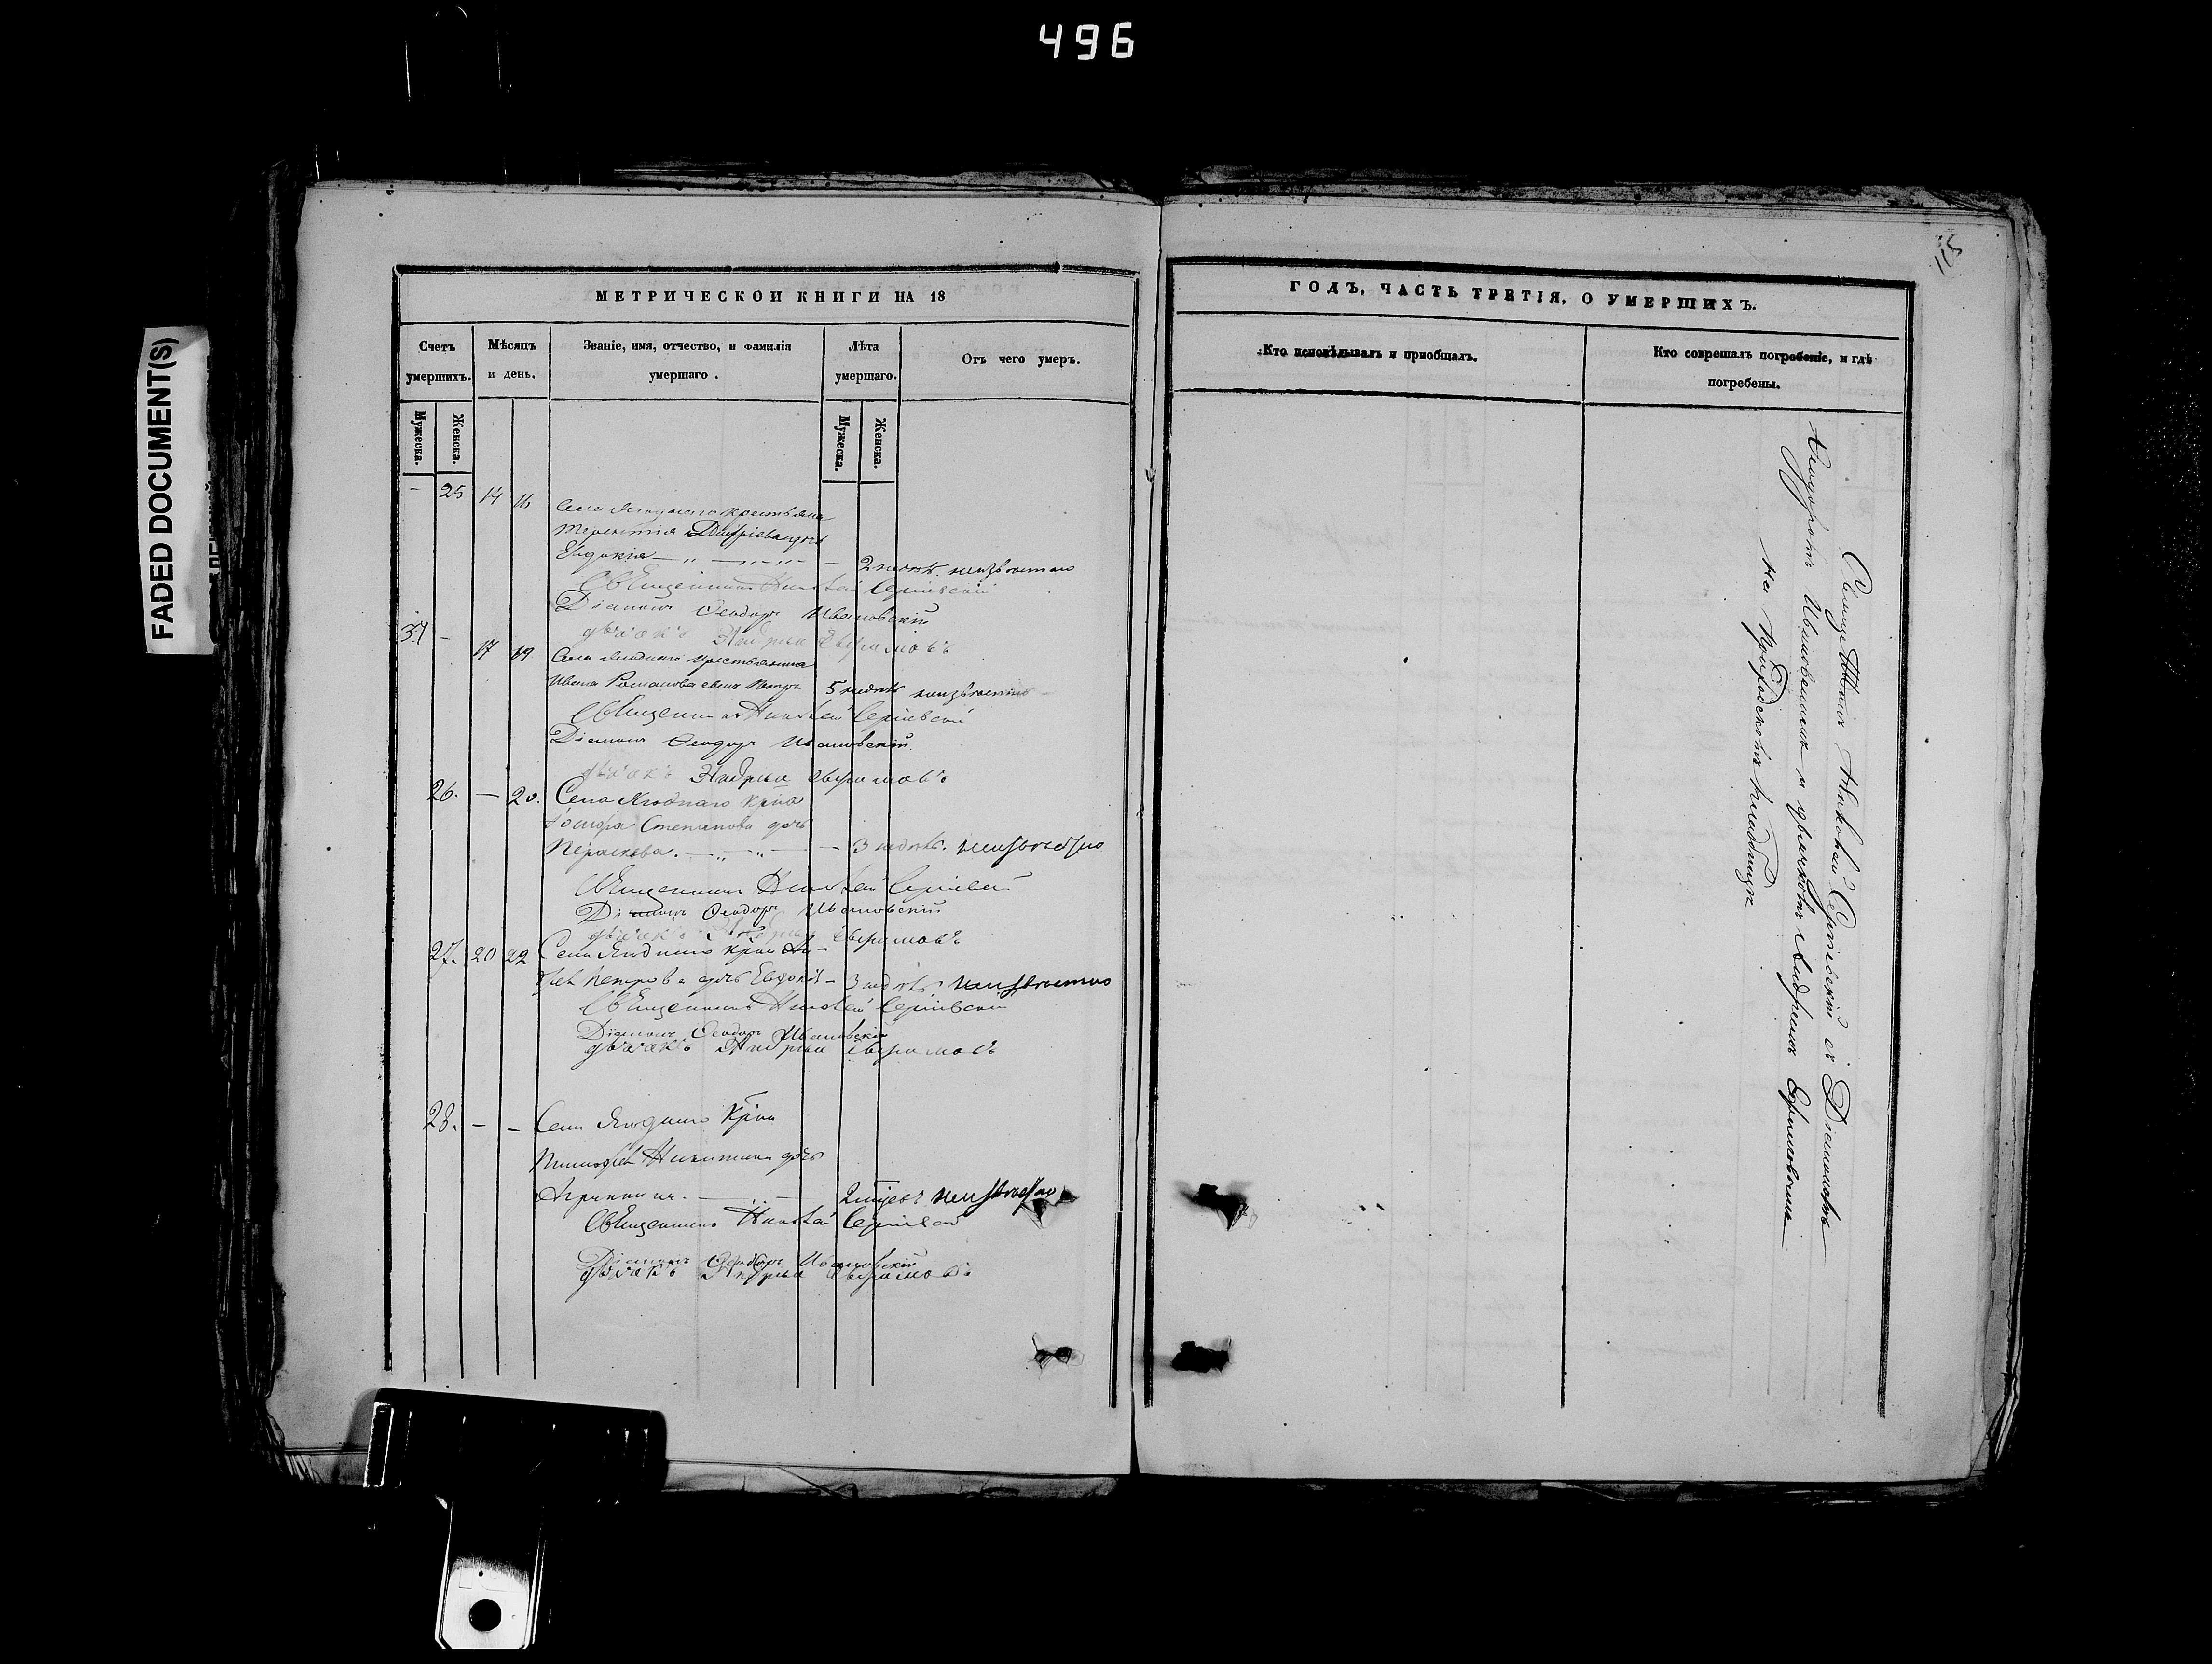 496
FADED DOCUMENT(S)
115
МЕТРИЧЕСКОЙ КНИГИ НА 18
Счетъ умершихъ.
Мѣсяцъ и день.
Званіе, имя, отчество, и фамилія умершаго.
Лѣта умершаго.
Отъ чего умеръ.
Мужеска.
Женска.
Мужеска.
Женска.
- 25 14 16
Села Ягоднаго крестьянина
Терентія Дмитріева дочь
Евдокія 2 недѣль неизвѣстно
Священникъ Николай Сергіевскій
Діаконъ Ѳеодоръ Ивановскій
дьячекъ Андрей Ефрамовъ
37 - 17 19
Села Ягоднаго крестьянина
Ивана Романова сынъ Петръ 5 недѣль неизвѣстно
Священникъ Николай Сергіевскій
Діаконъ Ѳеодоръ Ивановскій
дьячекъ Андрей Ефрамовъ
26. — 20. Села Ягоднаго крна
Степанова дочь
Параскева. 3 недѣль. неизвѣстно
Священникъ Николай Сергіевскій
Діаконъ Ѳеодоръ Ивановскій
дьячекъ Андрей Ефрамовъ
27. 20 22 Села Ягоднаго крна
Петрова дочь Евдокія 3 недѣль неизвѣстно
Священникъ Николай Сергіевскій
Діаконъ Ѳеодоръ Ивановскій
дьячекъ Андрей Ефрамовъ
28. - - Села Ягоднаго крна
Тимофея Никитина дочь
неизвѣстно
Священникъ Николай Сергіевскій
Діаконъ Ѳеодоръ Ивановскій
дьячекъ Андрей Ефрамовъ
ГОДЪ, ЧАСТЬ ТРЕТІЯ, О УМЕРШИХЪ.
Кто исповѣдывалъ и приобщалъ.
Кто соврешалъ погребеніе, и гдѣ
погребены.
Священникъ Николай Сергіевскій съ Діакономъ
Ѳеодоромъ Ивановскимъ и дьячкомъ Андреемъ Ефрамовымъ
на приходскомъ кладбищѣ